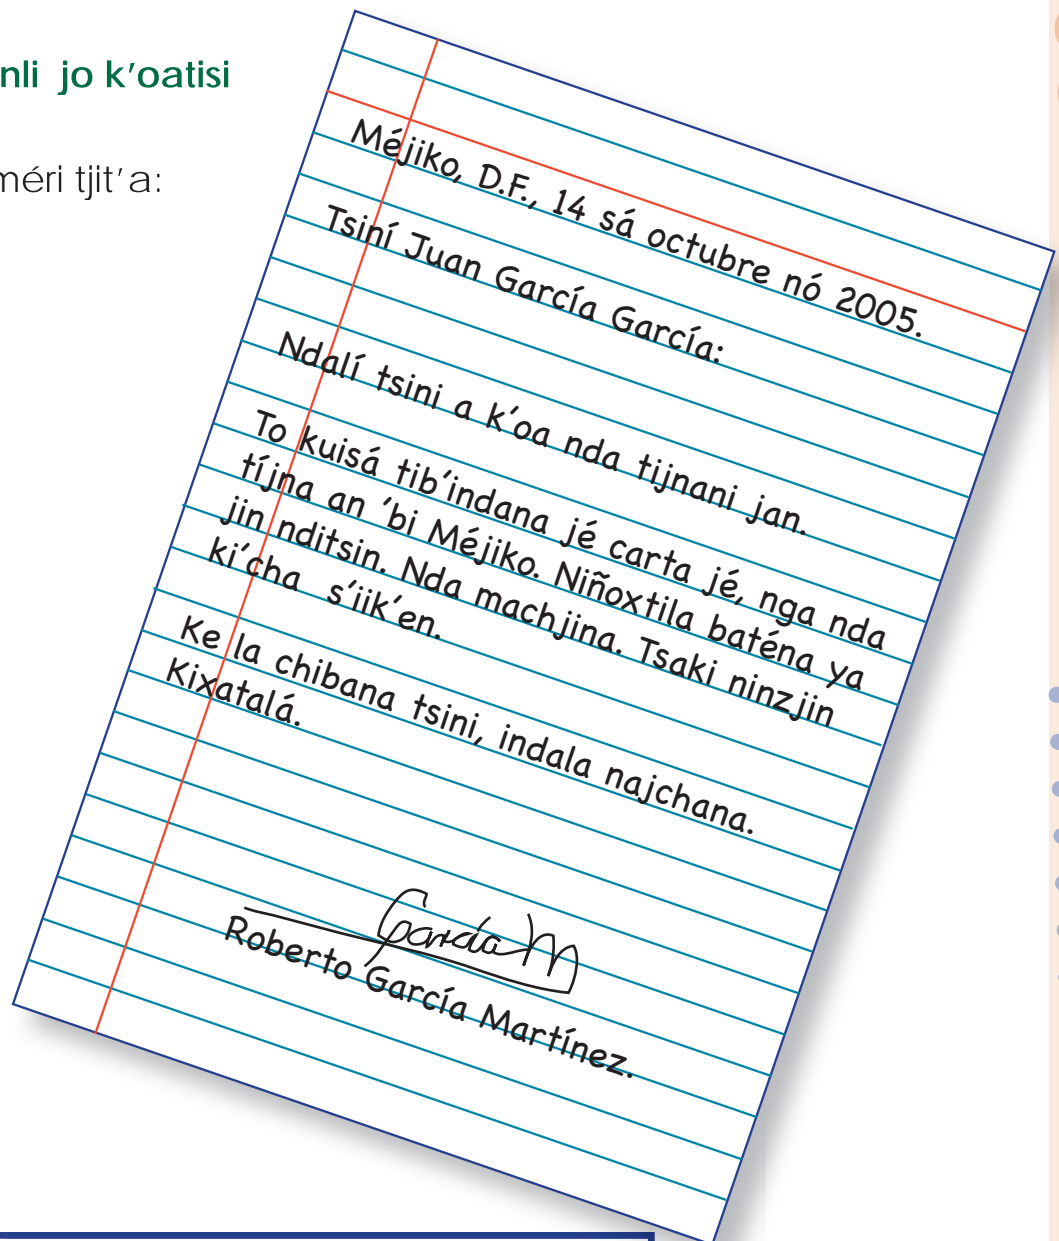 nli jo k’oatisi
méri tjit’a:
Méjiko, D.F., 14 sá octubre nó 2005.
Tsiní Juan García García:
Ndalí tsini a k’oa nda tijnani jan.
To kuisá tib’indana jé carta jé, nga nda
tíjna an ’bi Méjiko. Niñoxtila baténa ya
jin nditsin. Nda machjina. Tsaki ninzjin
ki’cha s’iik’en.
Ke la chibana tsini, indala najchana.
Kixatalá.
García M
Roberto García Martínez.